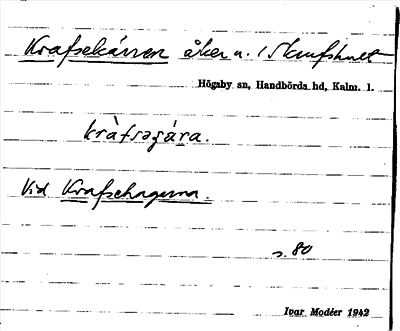 Krafsekärren åker u. Skrufshult
Högsby sn, Handbörds hd, Kalm. l.
kràfsəʒára.
Vid Krafsehagarna.
s. 80
Ivar Modéer 1942